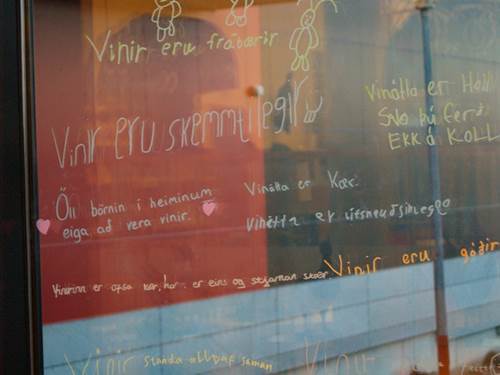 Vinir eru frábærir
Vinir eru skemmtilegir
Vinátta er Holl
Svo þú ferð
EKKÁ KOLL
Öll börnin í heiminum
eiga að vera vinir.
Vinátta er Kær.
Vinátta er
Vinurinn er ofsa kær, hann er eins og stjarnan skær.
Vinir eru góðir
Vinir standa alltaf saman
Vinir